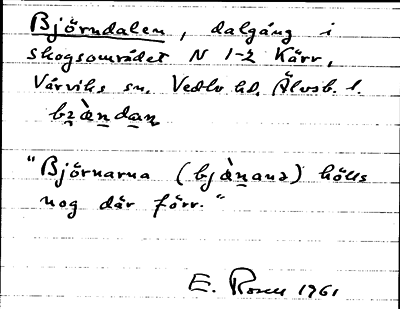 Björndalen, dalgång i
skogsområdet N 1-2 Kärr,
Vårviks sn. Vedbo hd. Älvsb. l.
bjä̀ṇdaṇ
"Björnarna (bjä̀ṇana) hölls
nog där förr."
E. Rosell 1961